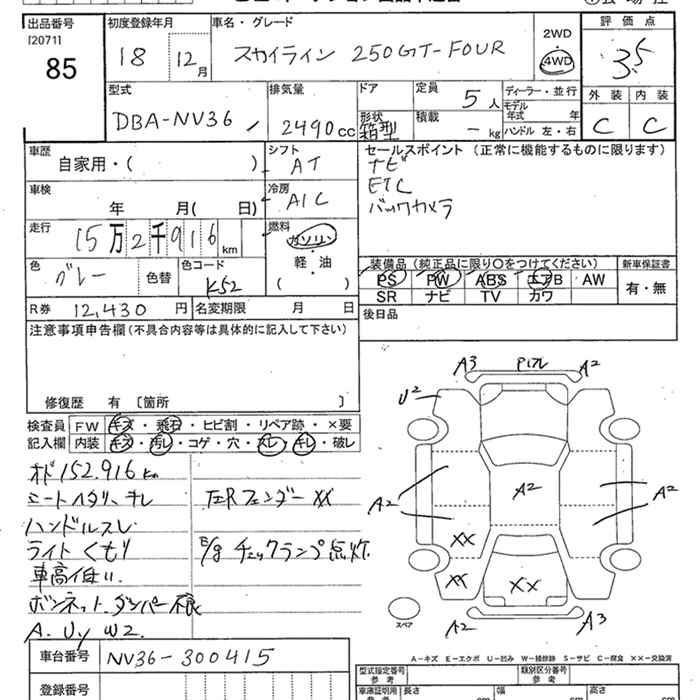 出品番号
I20711
85
初度登録年月
18 12月
車名・グレード
スカイライン 250GT-FOUR
2WD
4WD
評価点
3.5
外装 内装
C C
型式
DBA-NV36
排気量
2490cc
ドア
形状
箱型
定員
5人
積載
- kg
ディーラー・並行
モデル
年式 年
ハンドル 左・右
車歴
自家用・( )
シフト
AT
車検
年 月( 日)
冷房
A/C
走行
15万2千916km
燃料
ガソリン
軽・油
( )
色
グレー
色替
色コード
K52
R券 12,430円
名変期限 月 日
セールスポイント(正常に機能するものに限ります)
ナビ
ETC
バックカメラ
装備品(純正品に限り○をつけてください)
PS PW ABS エアB AW
SR ナビ TV カワ
新車保証書
有・無
後日品
注意事項申告欄(不具合内容等は具体的に記入して下さい)
修復歴 有 〔箇所 〕
検査員 FW キズ・飛石・ヒビ割・リペア跡・×要
記入欄 内装 キズ・汚レ・コゲ・穴・スレ・キレ・破レ
オド152.916km
シートヘタリ、キレ
ハンドルスレ
ライトくもり
車高低い.
ボンネットダンパー不良
A. U. y W2.
左Rフェンダー XX
E/g チェックランプ点灯.
A3 P1アレ A2
U2
A2 A2 A2
XX
XX XX
A2 A3
スペア
A-キズ E-エクボ U-凹み W-補修跡 S-サビ C-腐食 ××-交換済
車台番号 NV36-300415
登録番号
型式指定番号
参考
類別区分番号
参考
車庫証明用
参考
長さ cm
幅 cm
高さ cm